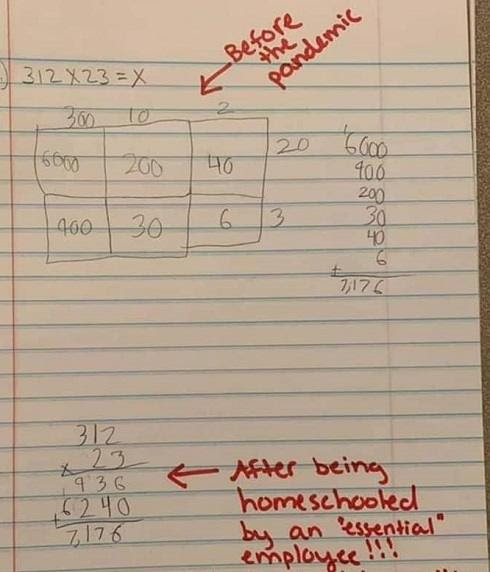 Before
the
pandemic
) 312 X 23 = X
300 10 2
6000 200 40 20
900 30 6 3
1
6000
900
200
30
40
6
+
7,176
312
x 23
1936
+6240
7,176
After being
homeschooled
by an "essential"
employee!!!